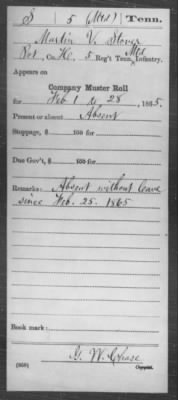 S 5 (Mtd) Tenn.
Martin V. Stover
Pvt, Co. H, 5 Reg't Tenn. Mtd Infantry.
Appears on
Company Muster Roll
for Feb 1 to 28, 1865.
Present or absent Absent
Stoppage, $ 100 for
Due Gov't, $ 100 for
Remarks: Absent without leave
since Feb. 25. 1865
Book mark:
G. W. Chase
(858) Copyist.